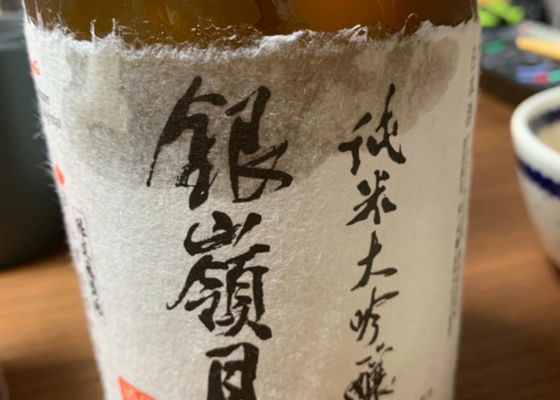 純米大吟醸
銀嶺月